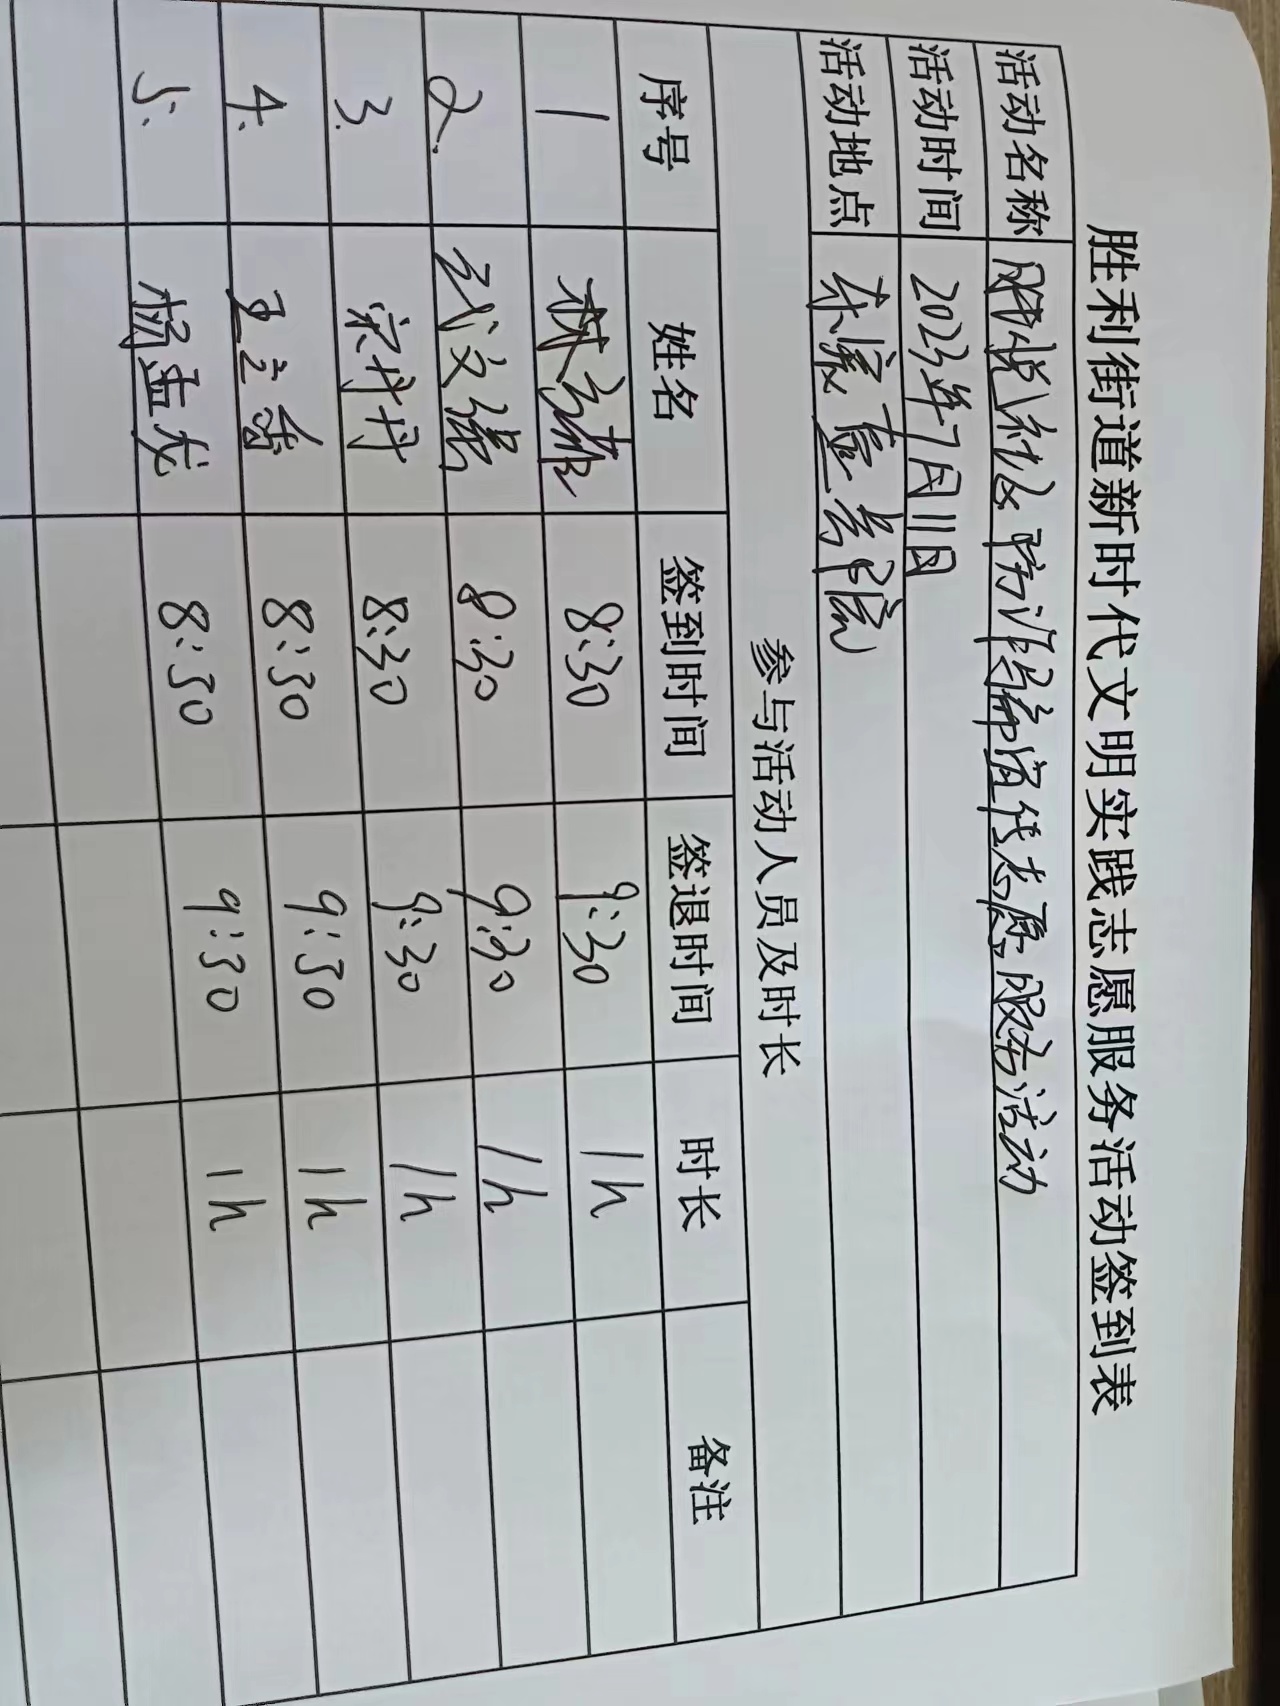 胜利街道新时代文明实践志愿服务活动签到表
活动名称 明悦社区防诈骗宣传志愿服务活动
活动时间 2023年7月11日
活动地点 东宸壹号院
参与活动人员及时长
序号 姓名 签到时间 签退时间 时长 备注
1 8:30 9:30 1h
2. 武文强 8:30 9:30 1h
3. 宋丹丹 8:30 9:30 1h
4. 王立香 8:30 9:30 1h
5. 杨孟龙 8:30 9:30 1h